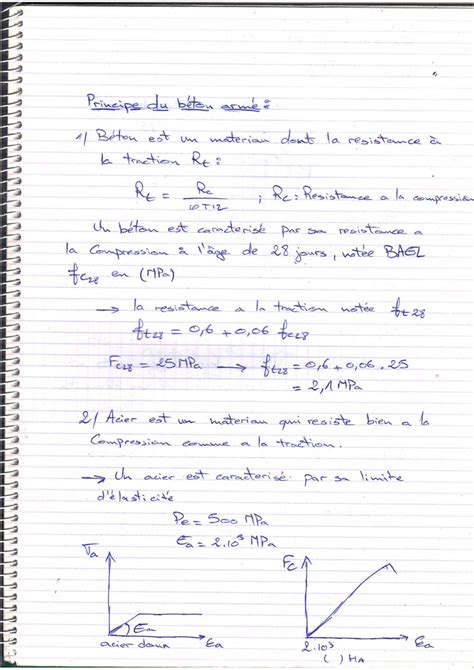 Principe du béton armé :
1/ Béton est un materiau dont la resistance à
la traction Rt :
Rt = Rc / 10 à 12 ; Rc : Resistance a la compression
Un béton est caracterisé par sa resistance a
la Compression à l'âge de 28 jours, notée BAEL
fc28 en (MPa)
→ la resistance a la traction notée ft28
ft28 = 0,6 + 0,06 fc28
Fc28 = 25 MPa → ft28 = 0,6 + 0,06 . 25
= 2,1 MPa
2/ Acier est un materiau qui resiste bien a la
Compression comme a la traction.
→ Un acier est caracterisé par sa limite
d'élasticité
Pe = 500 MPa
Ea = 2.10³ MPa
Ea
acier doux
Ea
Fc
Ea
2.10³
( ) HA